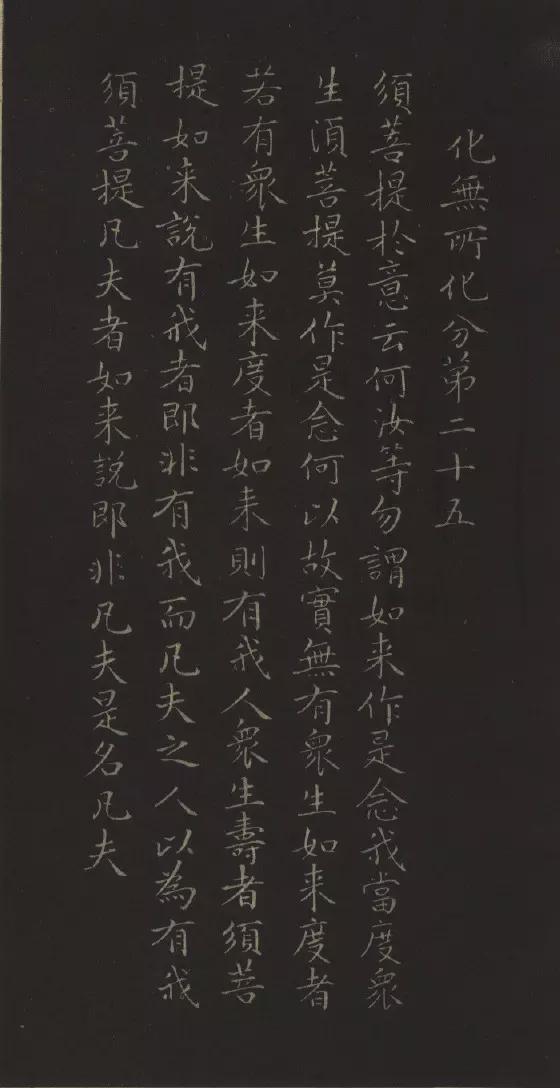 化無所化分第二十五
須菩提於意云何汝等勿謂如来作是念我當度衆
生須菩提莫作是念何以故實無有衆生如来度者
若有衆生如来度者如来則有我人衆生壽者須菩
提如来說有我者即非有我而凡夫之人以為有我
須菩提凡夫者如来說即非凡夫是名凡夫